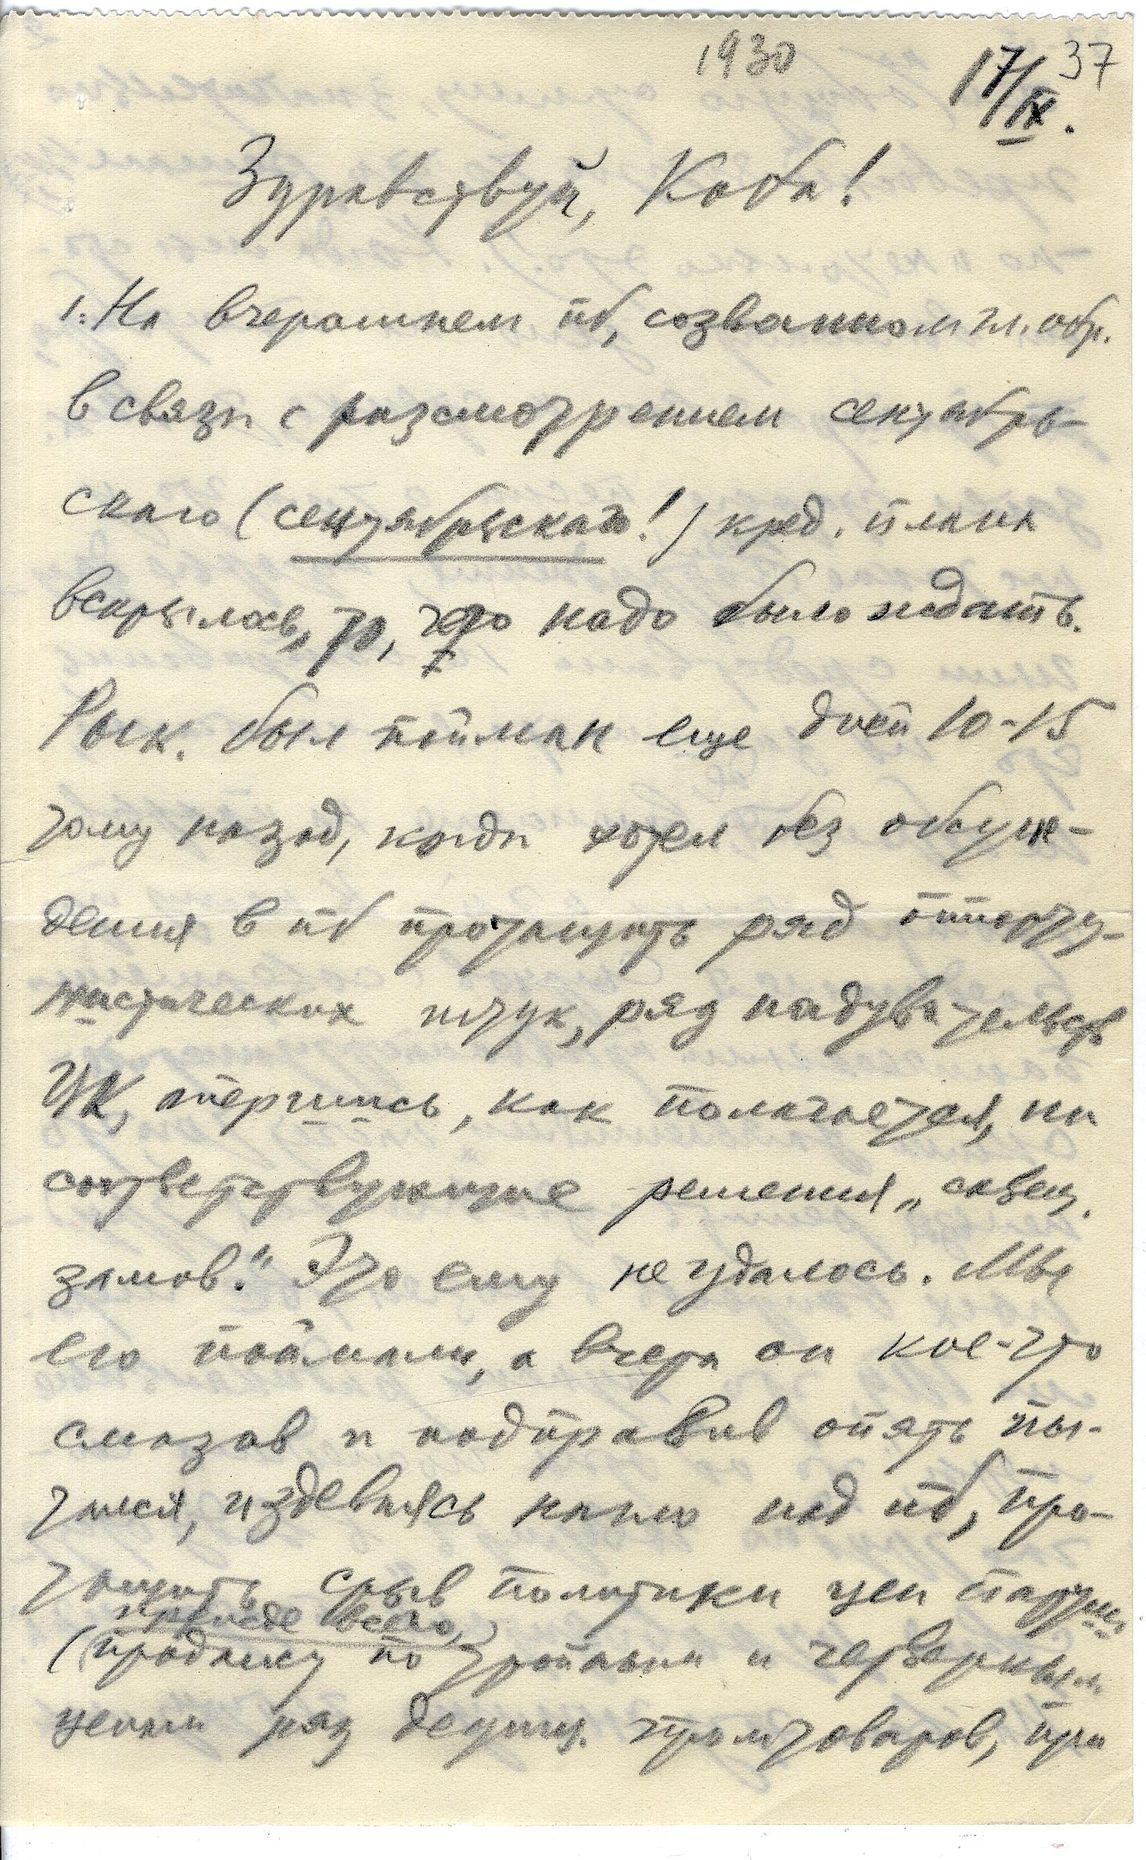 1930
17/IX.
37
Здравствуй, Коба!
1. На вчерашнем пб, созванном гл. обр.
в связи с рассмотрением сентябрь-
ского (сентябрьского!) кред. плана
вскрылось, то, чего надо было ждать.
Рык. был пойман еще дней 10-15
тому назад, когда хотел без обсуж-
дения в пб протащить ряд оппорту-
нистических штук, ряд надувательств
ЦК, опершись, как полагается, на
соответствующие решения „совещ.
замов“. Это ему не удалось. Мы
его поймали, а вчера он кое-что
смазав и подправив опять пы-
тался, издеваясь нагло над пб, про-
тащить срыв политики цен партии.
прежде всего,
(продажу по тройным и четверным
ценам ряд дефиц. промтоваров, при